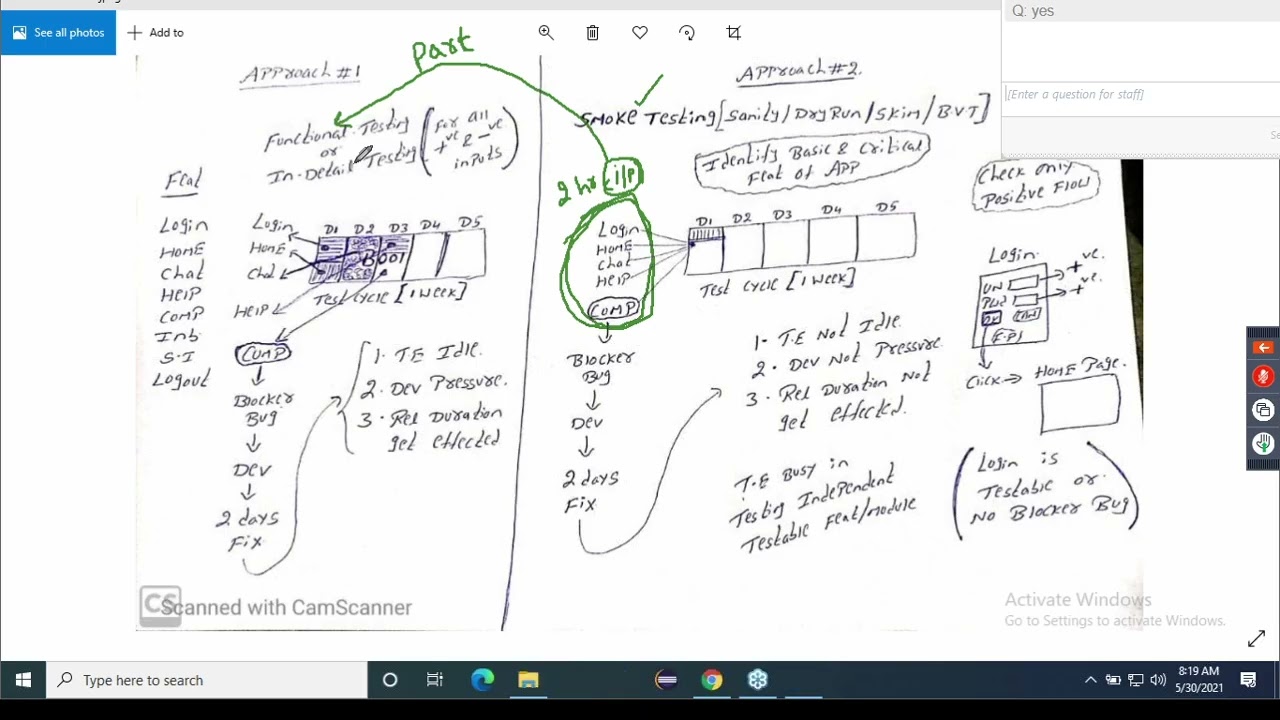 See all photos
Add to
Q: yes
[Enter a question for staff]
part
APProach #1
Functional Testing
or
In-Detail Testing
(For all
+ve & -ve
inputs)
Feat
Login
HOME
Chat
HelP
COMP
Inb
S.I
Logout
Login
HOME
Chat
HELP
COMP
D1 D2 D3 D4 D5
Test Cycle [1 week]
Blocker
Bug
Dev
2 days
Fix
1. T.E Idle.
2. Dev Pressure.
3. Rel Duration
get effected
APProach #2.
SMOKE Testing [Sanity/DryRun/Skim/B.V.T]
Identify Basic & Critical
Feat of APP
2 hr i/p
Login
HOME
Chat
HelP
COMP
D1 D2 D3 D4 D5
Test Cycle [1 week]
Blocker
Bug
Dev
2 days
Fix
1- T.E Not Idle.
2. Dev Not Pressure
3. Rel Duration Not
get effected.
T.E Busy in
Testing Independent
Testable Feat/module
Check only
Positive Flow
Login
UN +ve.
PWD +ve.
F.P
Click → HOME Page.
(Login is
Testable or
No Blocker Bug)
CS
Scanned with CamScanner
Activate Windows
Go to Settings to activate Windows.
Type here to search
8:19 AM
5/30/2021